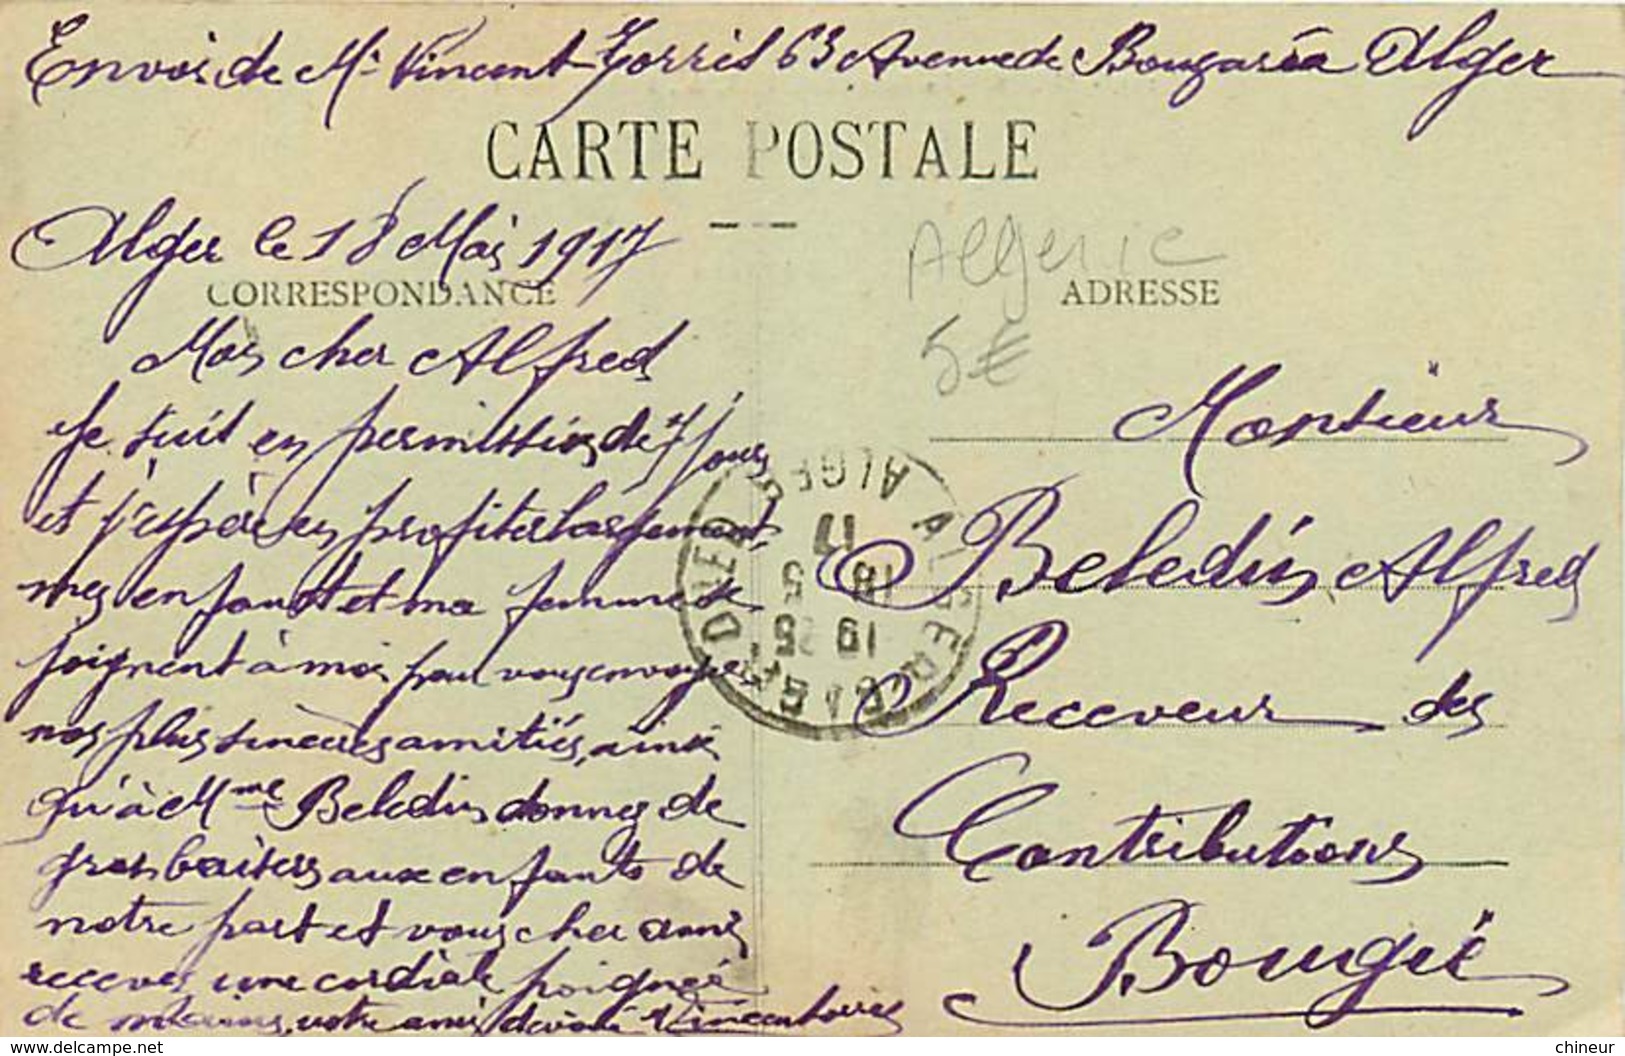 Envoi de Mr Vincent Torrès 63 Avenue de Bougaréa Alger
CARTE POSTALE
Alger le 18 Mai 1917
CORRESPONDANCE
Mon cher Alfred
Je suis en permission de 7 jours
et j'espère en profiter largement,
mes enfants et ma femme se
joignent à moi pour vous envoyer
nos plus sincères amitiés, ainsi
qu'à Mme Beledin donnez de
gros baisers aux enfants de
notre part et vous cher ami
recevez une cordiale poignée
de mains, votre ami dévoué Vincent Torrès
Algerie
5€
ADRESSE
Monsieur
Beledin Alfred
Receveur des
Contributions
Bougie
ALGER
18 5
17
chineur
www.delcampe.net